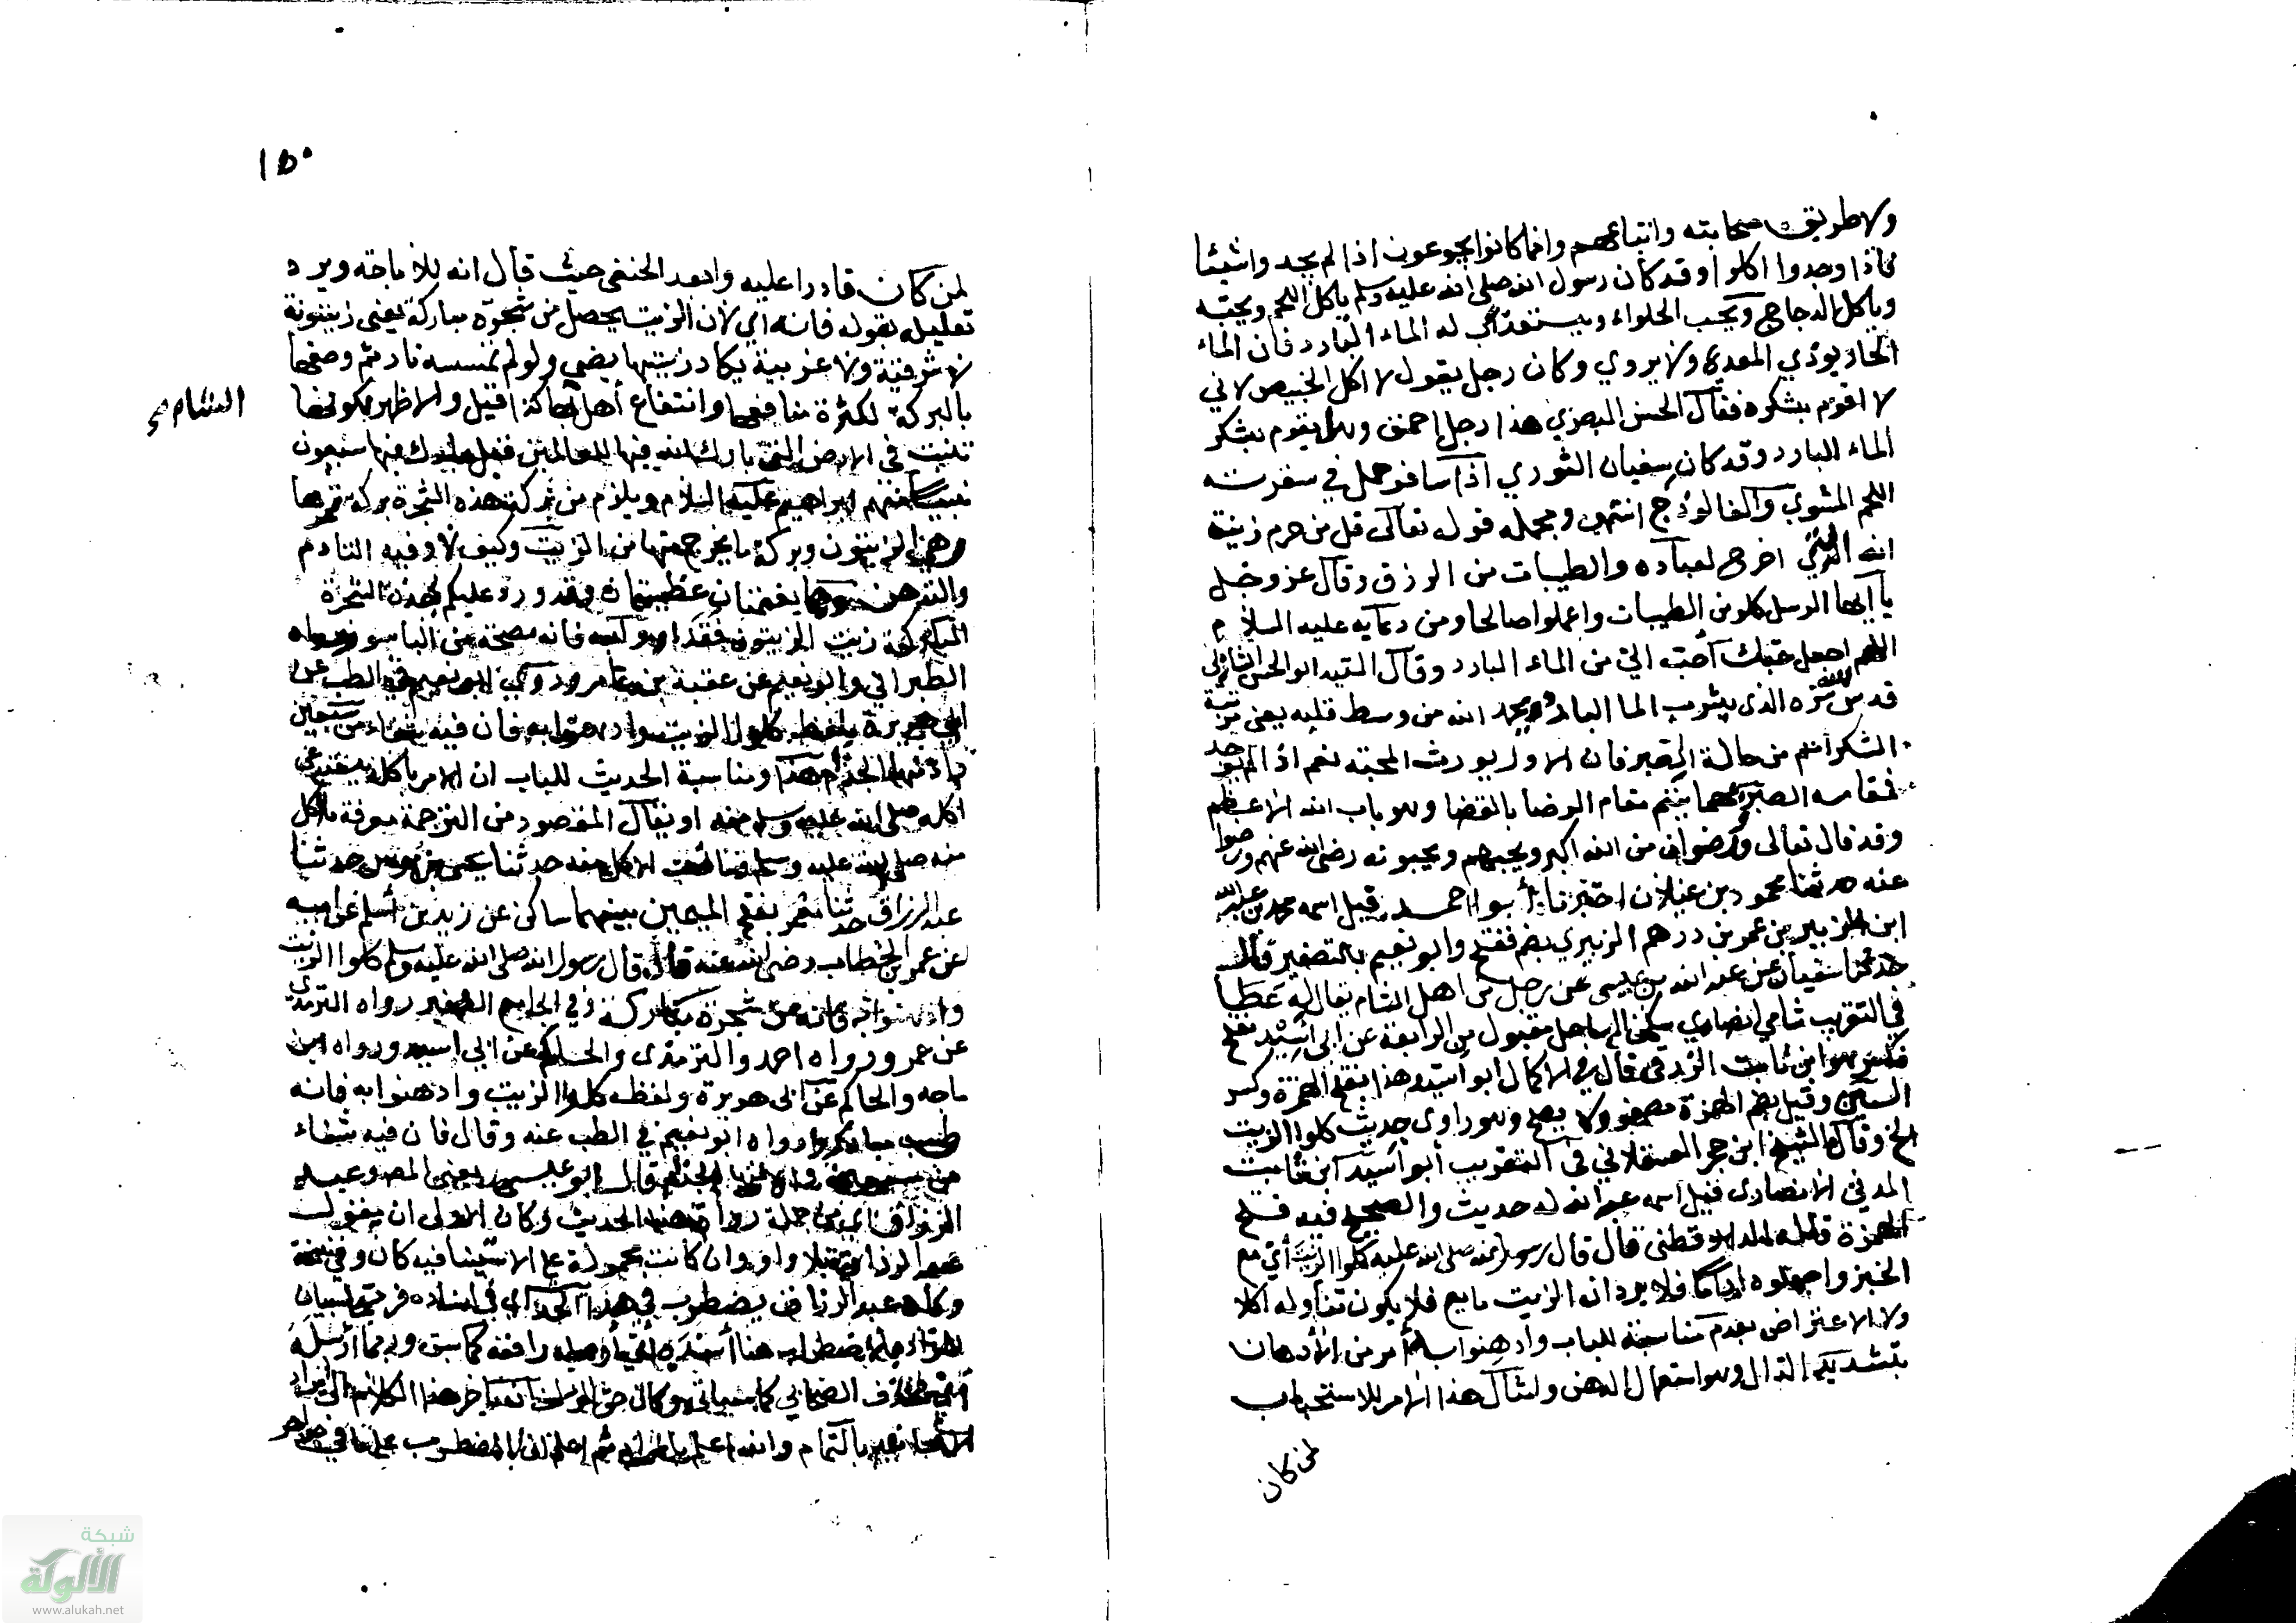 ولا طريق صحابته واتباعهم وانما كانوا يجوعون اذا لم يجدوا شيئا
فاذا وجدوا اكلوا وقد كان رسول الله صلى الله عليه وسلم ياكل اللحم ويحبه
وياكل الدجاج ويحب الحلواء ويستعذب له الماء البارد فان الماء
الحار يوذي المعدة ولا يروي وكان رجل يقول لا اكل الخبيص لاني
لا اقوم بشكره فقال الحسن البصري هذا رجل احمق وهل يقوم بشكر
الماء البارد وقد كان سفيان الثوري اذا سافر حمل في سفرته
اللحم المشوي والفالوذج انتهى ومجمله قوله تعالى قل من حرم زينة
الله التي اخرج لعباده والطيبات من الرزق وقال عز وجل
يا ايها الرسل كلوا من الطيبات واعملوا صالحا ومن دعايه عليه السلام
اللهم اجعل حبك احب الي من الماء البارد وقال السيد ابو الحسن الشاذلي
قدس الله سره الذي يشرب الما البارد ويحمد الله من وسط قلبه يعني مرتبة
الشكر اتم من حالة الصبر فان الاول يورث المحبة نعم اذا لم يوجد
فمقامه الصبر كما يتم مقام الرضا بالقضا وهو باب الله الاعظم
وقد قال تعالى ورضوان من الله اكبر ويحبهم ويحبونه رضي الله عنهم ورضوا
عنه حدثنا محمود بن غيلان اخبرنا ابو احمد قيل اسمه محمد بن عبد الله
ابن الزبير بن عمر بن درهم الزبيري بضم ففتح وابو نعيم بالتصغير قالا
حدثنا سفيان عن عبد الله بن عيسى عن رجل من اهل الشام يقال له عطا
في التقريب شامي انصاري سكن الساحل مقبول من الرابعة عن ابي اسيد بفتح
فكسر هو ابن ثابت الزرقي قال في الاكمال ابو اسيد هذا بفتح الهمزة وكسر
السين وقيل بضم الهمزة مصغر ولا يصح وهو راوي حديث كلوا الزيت
الخ وقال الشيخ ابن حجر العسقلاني في التقريب ابو اسيد ابن ثابت
المدني الانصاري قيل اسمه عبد الله له حديث والصحيح فيه فتح
الهمزة قاله الدارقطني قال قال رسول الله صلى الله عليه كلوا الزيت اي مع
الخبز واجعلوه اداما فلا يرد ان الزيت مايع فلا يكون تناوله اكلا
ولا الاعتراض بعدم مناسبة للباب وادهنوا به امر من الادهان
بتشديد الدال وهو استعمال الدهن ولمثال هذا الامر للاستحباب
لمن كان
١٥٠
لمن كان قادرا عليه وابعد الحنفي حيث قال انه للاباحة ويرد
تعليله بقوله فانه اي لان الزيت يحصل من شجرة مباركة يعني زيتونة
لا شرقية ولا غربية يكاد زيتها يضيء ولو لم تمسسه نار ثم وصفها
بالبركة لكثرة منافعها وانتفاع أهل الشام بها كذا قيل والاظهر لكونها
تنبت في الارض التي بارك الله فيها للعالمين قيل بارك فيها سبعون
نبيا منهم ابراهيم عليه السلام ويلزم من بركة هذه الشجرة بركة ثمرها
وهي الزيتون وبركة ما يخرج منها من الزيت وكيف لا وفيه التادم
والتدهن وهما نعمتان عظيمتان وقد ورد عليكم بهذه الشجرة
المباركة زيت الزيتون فتداووا به فانه مصحة من الباسور رواه
الطبراني وابو نعيم عن عقبة بن عامر وروى ابو نعيم في الطب عن
ابي هريرة بلفظ كلوا الزيت وادهنوا به فان فيه شفاء من سبعين
داء منها الجذام هذا ومناسبة الحديث للباب ان الامر باكله يستدعي
اكله صلى الله عليه وسلم منه او يقال المقصود من الترجمة معرفة ما اكل
منه صلى الله عليه وسلم وما احب الاكل منه حدثنا يحيى بن موسى حدثنا
عبد الرزاق حدثنا معمر بفتح الميمين بينهما ساكن عن زيد بن اسلم عن ابيه
عن عمر بن الخطاب رضي الله عنه قال قال رسول الله صلى الله عليه وسلم كلوا الزيت
وادهنوا به فانه من شجرة مباركة في الجامع الصغير رواه الترمذي
عن عمر ورواه احمد والترمذي والحاكم عن ابي اسيد ورواه ابن
ماجه والحاكم عن ابي هريرة ولفظه كلوا الزيت وادهنوا به فانه
طيب مبارك ورواه ابو نعيم في الطب عنه وقال فان فيه شفاء
من سبعين داء منها الجذام قال ابو عيسى يعني المص وعبد
الرزاق اي من جملة رواة هذا الحديث وكان الاولى ان يقول
عبد الرزاق بلا واو وان كانت محمولة على الاستيناف كان وفي نسخة
وكان عبد الرزاق يضطرب في هذا الحديث اي في اسناده فربما
اسنده اي اوصله ورفعه كما سبق وربما ارسله
اي بحذف الصحابي كما سياتي وكان حق المولف تاخير هذا الكلام الى ايراد
بالتمام والله اعلم بالمرام ثم اعلم ان المضطرب على ما في جواهر